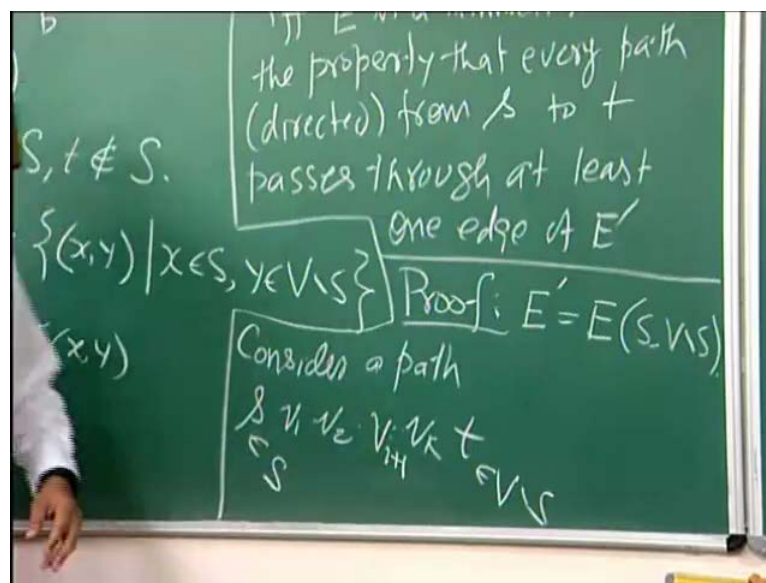 b
the property that every path
(directed) from s to t
passes through at least
one edge of E'
S, t ∉ S.
{(x,y) | x ∈ S, y ∈ V \ S}
(x,y)
Proof: E' = E(S, V\S)
Consider a path
s v₁ v₂ . vᵢ₊₁ vₖ t
∈ S ∈ V\S